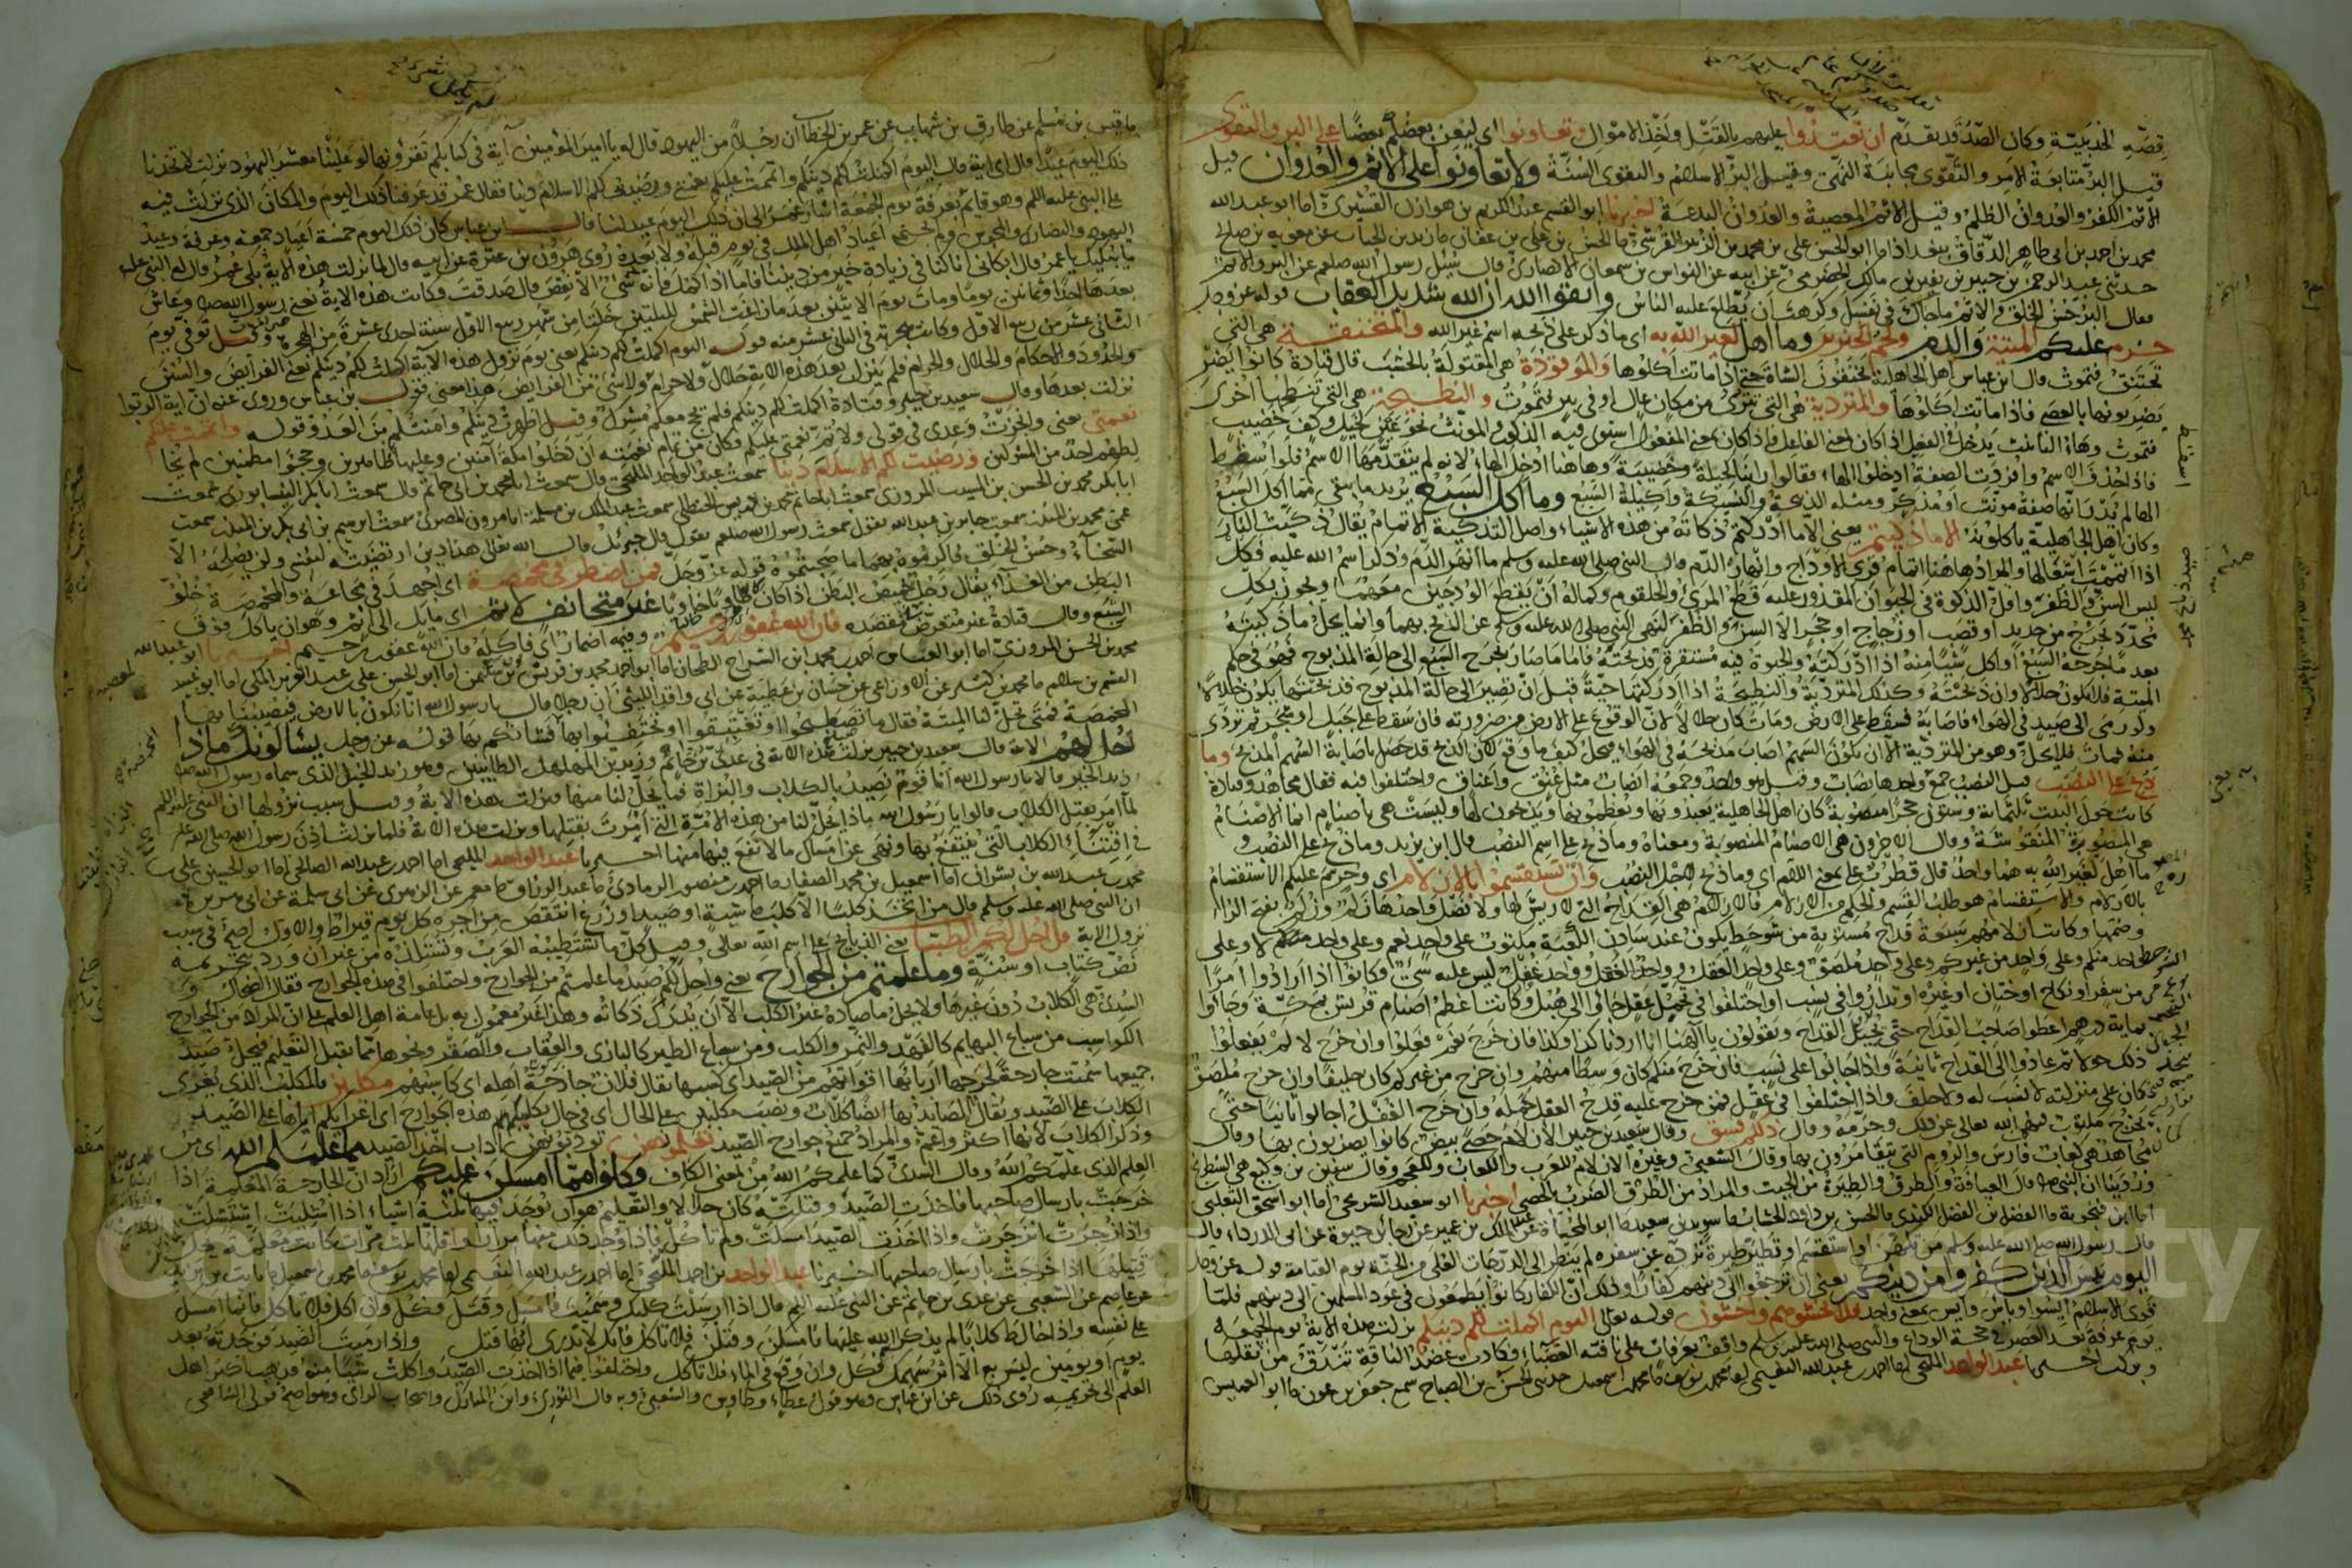 قصة الحديبية وكان الصد قد تقدم ان تعتدوا عليهم بالقتل واخذ الاموال وتعاونوا اى ليعن بعضكم بعضا على البر والتقوى
قيل البر متابعة الامر والتقوى مجانبة النهى وقيل البر الاسلام والتقوى السنة ولا تعاونوا على الاثم والعدوان قيل
الاثم الكفر والعدوان الظلم وقيل الاثم المعصية والعدوان البدعة اخبرنا ابو القسم عبد الكريم بن هوازن القشيرى انا ابو عبد الله
محمد بن احمد بن ابى طاهر الدقاق ببغداد انا ابو الحسن على بن محمد بن الزبير القرشى نا الحسن بن على بن عفان نا زيد بن الحباب عن معوية بن صالح
حدثنى عبد الرحمن بن جبير بن نفير بن مالك الحضرمى عن ابيه عن النواس بن سمعان الانصارى قال سئل رسول الله صلعم عن البر والاثم
فقال البر حسن الخلق والاثم ما حاك فى نفسك وكرهت ان يطلع عليه الناس واتقوا الله ان الله شديد العقاب قوله عز وجل
حرمت عليكم الميتة والدم ولحم الخنزير وما اهل لغير الله به اى ما ذكر على ذبحه اسم غير الله والمنخنقة هى التى
تختنق فتموت قال ابن عباس اهل الجاهلية يخنقون الشاة حتى اذا ماتت اكلوها والموقوذة هى المقتولة بالخشب قال قتادة كانوا
يضربونها بالعصى فاذا ماتت اكلوها والمتردية هى التى تتردى من مكان عال او فى بير فتموت والنطيحة هى التى تنطحها اخرى
فتموت وهاء التانيث يدخل فى الفعيل اذا كان بمعنى الفاعل فاذا كان بمعنى المفعول استوى فيه المذكر والمونث نحو عين كحيل وكف خضيب
فاذا حذف الاسم وافردت الصفة ادخلوا الهاء فقالوا راينا كحيلة وخضيبة وهاهنا ادخل الهاء لانه لم يتقدمها الاسم فلو اسقط
الهاء لم يدر انها صفة مونث او مذكر ومثله الذبيحة والنسيكة واكيلة السبع وما اكل السبع يريد ما بقى مما اكل السبع
وكان اهل الجاهلية ياكلونه الا ما ذكيتم يعنى الا ما ادركتم ذكاته من هذه الاشياء واصل التذكية الاتمام يقال ذكيت النار
اذا اتممت اشتعالها والمراد هاهنا اتمام فرى الاوداج وانهار الدم قال النبى صلى الله عليه وسلم ما انهر الدم وذكر اسم الله عليه فكل
ليس السن والظفر واقل الذكوة فى الحيوان المقدور عليه قطع المرى والحلقوم وكماله ان يقطع الودجين معهما ويجوز بكل
محدد يجرح من حديد او قصب او زجاج او حجر الا السن والظفر لنهى النبى صلى الله عليه وسلم عن الذبح بهما وانما يحل ما ذكيته
بعد ما جرحه السبع او اكل شيئا منه اذا ادركته والحيوة فيه مستقرة فذبحته فاما ما صار بجرح السبع الى حالة المذبوح فهو فى حكم
الميتة فلا يكون حلالا وان ذبحته وكذلك المتردية والنطيحة اذا ادركتها حية قبل ان تصير الى حالة المذبوح فذبحتها يكون حلالا
ولو رمى الى صيد فى الهواء فاصابه فسقط على الارض ومات كان حلالا لان الوقوع على الارض من ضرورته فان سقط على جبل او شجر ثم تردى
منه فمات فلا يحل وهو من المتردية الا ان يكون السهم اصاب مذبحه فى الهواء فيحل كيف ما وقع لان الذبح قد حصل باصابة السهم المذبح وما
ذبح على النصب قيل النصب جمع واحدها نصاب وقيل هو واحد وجمعه انصاب مثل عنق واعناق واختلفوا فيه فقال مجاهد وقتادة
كانت حول البيت ثلثماية وستون حجرا منصوبة كان اهل الجاهلية يعبدونها ويعظمونها ويذبحون لها وليست هى باصنام انما الاصنام
هى المصورة المنقوشة وقال الاخرون هى الاصنام المنصوبة ومعناه وما ذبح على اسم النصب قال ابن زيد وما ذبح على النصب و
ما اهل لغير الله به هما واحد قال قطرب على بمعنى اللام اى وما ذبح لاجل النصب وان تستقسموا بالازلام اى وحرم عليكم الاستقسام
بالازلام والاستقسام هو طلب القسم والحكم من الازلام والازلام هى القداح التى لا ريش لها ولا نصل واحدها زلم وزلم بفتح الزاء
وضمها وكانت ازلامهم سبعة قداح مستوية من شوحط يكون عند سادن الكعبة مكتوب على واحد نعم وعلى واحد لا وعلى
واحد منكم وعلى واحد من غيركم وعلى واحد ملصق وعلى واحد العقل وواحد غفل ليس عليه شئ وكانوا اذا ارادوا امرا
من سفر او نكاح او ختان او غيره او تداروا فى نسب او اختلفوا فى تحمل عقل جاوا الى هبل وكانت اعظم اصنام قريش بمكة وجاوا
بماية درهم اعطوها صاحب القداح حتى يجيل القداح ويقولون يا آلهنا انا اردنا كذا وكذا فان خرج نعم فعلوا وان خرج لا لم يفعلوا
ذلك حولا ثم عادوا الى القداح ثانية واذا اجالوا على نسب فان خرج منكم كان وسطا منهم وان خرج من غيركم كان حليفا وان خرج ملصق
كان على منزلته لا نسب له ولا حلف واذا اختلفوا فى عقل فمن خرج عليه قدح العقل حمله وان خرج الغفل اجالوا ثانيا حتى
يخرج مكتوب فنهى الله تعالى عن ذلك وحرمه وقال ذلكم فسق وقال سعيد بن جبير الازلام حصى بيض كانوا يضربون بها وقال
مجاهد هى كعاب فارس والروم التى يتقامرون بها وقال الشعبى وغيره الازلام للعرب والكعاب للعجم وقال سفين بن وكيع هى الشطرنج
وروينا ان النبى صلعم قال العيافة والطرق والطيرة من الجبت والمراد من الطرق الضرب بالحصى اخبرنا ابو سعيد الشريحى انا ابو اسحق الثعلبى
انا ابن فنجوية نا الفضل بن الفضل الكندى نا الحسن بن داود الخشاب نا سويد بن سعيد نا ابو المحياة عن عبد الملك بن عمير عن رجاء بن حيوة عن ابى الدرداء قال
قال رسول الله صلى الله عليه وسلم من تكهن او استقسم او تطير طيرة ترده عن سفره لم ينظر الى الدرجات العلى من الجنة يوم القيامة قوله عز وجل
اليوم يئس الذين كفروا من دينكم يعنى ان ترجعوا الى دينهم كفارا وذلك ان الكفار كانوا يطمعون فى عود المسلمين الى دينهم فلما
قوى الاسلام ايسوا ويئس وايس بمعنى واحد فلا تخشوهم واخشون قوله تعالى اليوم اكملت لكم دينكم نزلت هذه الاية يوم الجمعة
يوم عرفة بعد العصر فى حجة الوداع والنبى صلى الله عليه وسلم واقف بعرفات على ناقته العضباء فكادت عضد الناقة تندق من ثقلها
وبركت اخبرنا عبد الواحد المليحى انا احمد بن عبد الله النعيمى انا محمد بن يوسف نا محمد بن اسمعيل حدثنى الحسن بن الصباح سمع جعفر بن عون نا ابو العميس
نا قيس بن مسلم عن طارق بن شهاب عن عمر بن الخطاب ان رجلا من اليهود قال له يا امير المؤمنين آية فى كتابكم تقرؤنها لو علينا معشر اليهود نزلت لاتخذنا
ذلك اليوم عيدا قال اى اية قال اليوم اكملت لكم دينكم واتممت عليكم نعمتى ورضيت لكم الاسلام دينا فقال عمر قد عرفنا ذلك اليوم والمكان الذى نزلت فيه
على النبى عليه السلم وهو قائم بعرفة يوم الجمعة اشار عمر الى ان ذلك اليوم عيد لنا قال ابن عباس كان ذلك اليوم خمسة اعياد جمعة وعرفة وعيد
اليهود والنصارى والمجوس ولم يجتمع اعياد اهل الملل فى يوم قبله ولا بعده روى هرون بن عنترة عن ابيه قال لما نزلت هذه الاية بكى عمر فقال له النبى عليه
ما يبكيك يا عمر قال ابكانى انا كنا فى زيادة من ديننا فاما اذا كمل فانه لم يكمل شئ الا نقص قال صدقت وكانت هذه الاية نعى رسول الله صلعم وعاش
بعدها احدا وثمانين يوما ومات يوم الاثنين بعد ما زاغت الشمس لليلتين خلتا من شهر ربيع الاول سنة احدى عشرة من الهجرة وقيل توفى يوم
الثانى عشر من ربيع الاول وكانت هجرته فى الثانى عشر منه قوله اليوم اكملت لكم دينكم يعنى يوم نزول هذه الآية اكملت لكم دينكم يعنى الفرايض والسنن
والحدود والاحكام والحلال والحرام فلم ينزل بعد هذه الاية حلال ولا حرام ولا شئ من الفرايض هذا معنى قول ابن عباس وروى عنه ان اية الربوا
نزلت بعدها وقال سعيد بن جبير وقتادة اكملت لكم دينكم فلم يحج معكم مشرك وقيل اظهرت دينكم وامنتكم من العدو قوله واتممت عليكم
نعمتى يعنى وانجزت وعدى فى قولى ولاتم نعمتى عليكم فكان من تمام نعمته ان دخلوا مكة آمنين وعليها ظاهرين وحجوا مطمئنين لم يخا
لطهم احد من المشركين ورضيت لكم الاسلام دينا سمعت عبد الواحد المليحى قال سمعت ابا محمد بن ابى حاتم قال سمعت ابا بكر النيسابورى سمعت
ابا بكر محمد بن الحسن بن المسيب المروزى سمعت ابا حاتم محمد بن ادريس الحنظلى سمعت عبد الملك بن مسلمة انا مروان المصرى سمعت ابرهيم بن ابى بكر بن المنكدر سمعت
عمى محمد بن المنكدر سمعت جابر بن عبد الله يقول سمعت رسول الله صلعم يقول قال جبرئيل قال الله تعالى هذا دين ارتضيته لنفسى ولن يصلحه الا
السخاء وحسن الخلق فاكرموه بهما ما صحبتموه قوله عز وجل فمن اضطر فى مخمصة اى اجهد فى مجاعة والمخمصة خلو
البطن من الغذاء يقال رجل خميص البطن اذا كان طاويا خاويا غير متجانف لاثم اى مايل الى اثم وهو ان ياكل فوق
الشبع وقال قتادة غير متعرض لمعصية فى مقصده فان الله غفور رحيم وفيه اضمار اى فاكله فان الله غفور رحيم اخبرنا ابو عبد الله
محمد بن الحسن المروزى انا ابو العباس احمد بن محمد بن السراج الطحان انا ابو احمد محمد بن قريش بن سليمن انا ابو الحسن على بن عبد العزيز المكى انا ابو عبيد
القسم بن سلام نا محمد بن كثير عن الاوزاعى عن حسان بن عطية عن ابى واقد الليثى ان رجلا قال يا رسول الله انا نكون بالارض فيصيبنا بها
المخمصة فمتى تحل لنا الميتة فقال ما لم تصطبحوا او تغتبقوا او تختفئوا بها بقلا فشانكم بها قوله عز وجل يسألونك ماذا
احل لهم الاية قال سعيد بن جبير نزلت هذه الاية فى عدى بن حاتم وزيد بن المهلهل الطائيين وهو زيد الخيل الذى سماه رسول الله صلعم
زيد الخير قالا يا رسول الله انا قوم نصيد بالكلاب والبزاة فما يحل لنا منها فنزلت هذه الاية وقيل سبب نزولها ان النبى عليه السلم
لما امر بقتل الكلاب قالوا يا رسول الله ماذا يحل لنا من هذه الامة التى امرت بقتلها ونزلت هذه الاية فلما نزلت اذن رسول الله صلى الله عليه
فى اقتناء الكلاب التى ينتفع بها ونهى عن امساك ما لا نفع فيها منها اخبرنا عبد الواحد المليحى انا احمد بن عبد الله الصالحى انا ابو الحسين على بن
محمد بن عبد الله بن بشران انا اسمعيل بن محمد الصفار نا احمد بن منصور الرمادى نا عبد الرزاق نا معمر عن الزهرى عن ابى سلمة عن ابى هريرة
ان النبى صلى الله عليه وسلم قال من اتخذ كلبا الا كلب ماشية او صيد او زرع انتقص من اجره كل يوم قيراط والاول اصح فى سبب
نزول الاية قل احل لكم الطيبات يعنى الذبائح على اسم الله تعالى وقيل كل ما تستطيبه العرب وتستلذه من غير ان ورد بتحريمه
نص كتاب او سنة وما علمتم من الجوارح يعنى واحل لكم صيد ما علمتم من الجوارح واختلفوا فى هذه الجوارح فقال الضحاك و
السدى هى الكلاب دون غيرها ولا يحل ما صاده غير الكلب الا ان يدرك ذكاته وهذا غير معمول به بل عامة اهل العلم على ان المراد من الجوارح
الكواسب من سباع البهايم كالفهد والنمر والكلب ومن سباع الطير كالبازى والعقاب والصقر ونحوها مما يقبل التعليم فيحل صيد
جميعها سميت جارحة لجرحها اربابها اقواتهم من الصيد اى كسبها يقال فلان جارحة اهله اى كاسبهم مكلبين والمكلب الذى يغرى
الكلاب على الصيد ويقال للصايد بها ايضا كلاب ونصب مكلبين على الحال اى فى حال تكليبكم هذه الجوارح اى اغرائكم اياها على الصيد
وذكر الكلاب لانها اكثر واعم والمراد جميع جوارح الصيد تعلمونهن تؤدبونهن آداب اخذ الصيد مما علمكم الله اى من
العلم الذى علمكم الله وقال السدى كما علمكم الله من بمعنى الكاف وكلوا مما امسكن عليكم اراد ان الجارحة المعلمة اذا
خرجت بارسال صاحبها فاخذت الصيد وقتلته كان حلالا والتعليم هو ان يوجد فيها ثلثة اشياء اذا اشليت استشلت
واذا زجرت انزجرت واذا اخذت الصيد امسكت ولم تأكل فاذا وجد ذلك منها مرارا واقلها ثلث مرات كانت معلمة يحل
قتيلها اذا خرجت بارسال صاحبها اخبرنا عبد الواحد بن احمد المليحى انا احمد بن عبد الله النعيمى انا محمد بن يوسف نا محمد بن اسمعيل نا ثابت بن يزيد
عن عاصم عن الشعبى عن عدى بن حاتم عن النبى عليه السلم قال اذا ارسلت كلبك وسميت فامسك وقتل فكل وان اكل فلا تاكل فانما امسك
على نفسه واذا خالط كلابا لم يذكر اسم الله عليها فامسكن وقتلن فلا تاكل فانك لا تدرى ايها قتل واذا رميت الصيد فوجدته بعد
يوم او يومين ليس به الا اثر سهمك فكل وان وقع فى الماء فلا تاكل واختلفوا فيما اذا اخذت الصيد واكلت شيئا منه فذهب اكثر اهل
العلم الى تحريمه روى ذلك عن ابن عباس وهو قول عطاء وطاوس والشعبى وبه قال الثورى وابن المبارك واصحاب الراى وهو اصح قولى الشافعى